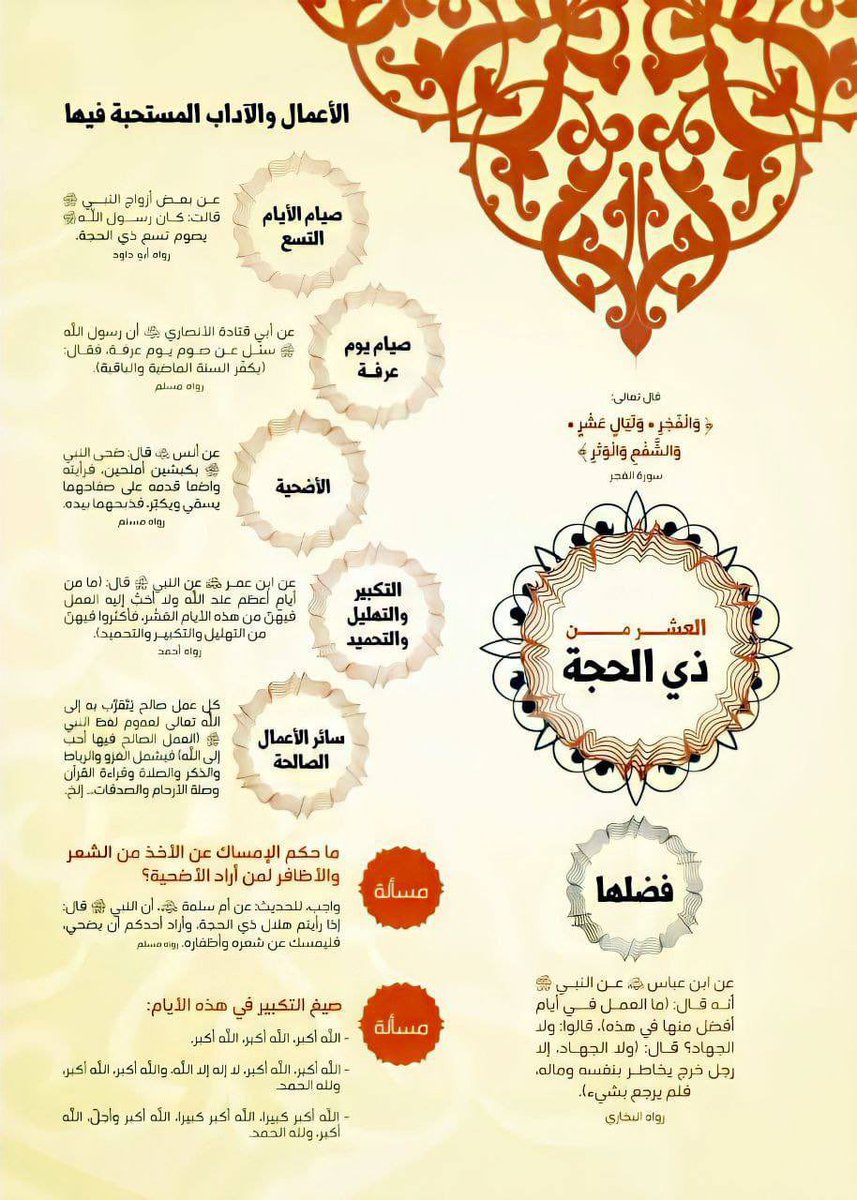 قال تعالى:
﴿ وَالْفَجْرِ • وَلَيَالٍ عَشْرٍ •
وَالشَّفْعِ وَالْوَتْرِ ﴾
سورة الفجر
العشر من
ذي الحجة
فضلها
عن ابن عباس ﷺ عن النبي ﷺ
أنه قال: (ما العمل في أيام
أفضل منها في هذه)، قالوا: ولا
الجهاد؟ قال: (ولا الجهاد، إلا
رجل خرج يخاطر بنفسه وماله،
فلم يرجع بشيء).
رواه البخاري
الأعمال والآداب المستحبة فيها
صيام الأيام
التسع
عن بعض أزواج النبي ﷺ
قالت: كان رسول الله ﷺ
يصوم تسع ذي الحجة.
رواه أبو داود
صيام يوم
عرفة
عن أبي قتادة الأنصاري أن رسول الله
ﷺ سئل عن صوم يوم عرفة، فقال:
(يكفّر السنة الماضية والباقية).
رواه مسلم
الأضحية
عن أنس قال: ضحى النبي
ﷺ بكبشين أملحين، فرأيته
واضعا قدمه على صفاحهما
يسمّي ويكبّر، فذبحهما بيده.
رواه مسلم
التكبير
والتهليل
والتحميد
عن ابن عمر عن النبي ﷺ قال: (ما من
أيام أعظم عند الله ولا أحبّ إليه العمل
فيهنّ من هذه الأيام العشر، فأكثروا فيهنّ
من التهليل والتكبير والتحميد).
رواه أحمد
سائر الأعمال
الصالحة
كل عمل صالح يُتقرّب به إلى
الله تعالى لعموم لفظ النبي
ﷺ (العمل الصالح فيها أحب
إلى الله) فيشمل الغزو والرباط
والذكر والصلاة وقراءة القرآن
وصلة الأرحام والصدقات... إلخ.
مسألة
ما حكم الإمساك عن الأخذ من الشعر
والأظافر لمن أراد الأضحية؟
واجب، للحديث: عن أم سلمة، أن النبي ﷺ قال:
إذا رأيتم هلال ذي الحجة، وأراد أحدكم أن يضحي،
فليمسك عن شعره وأظفاره. رواه مسلم
مسألة
صيغ التكبير في هذه الأيام:
- الله أكبر، الله أكبر، الله أكبر.
- الله أكبر، الله أكبر، لا إله إلا الله، والله أكبر، الله أكبر،
ولله الحمد.
- الله أكبر كبيرا، الله أكبر كبيرا، الله أكبر وأجلّ، الله
أكبر، ولله الحمد.